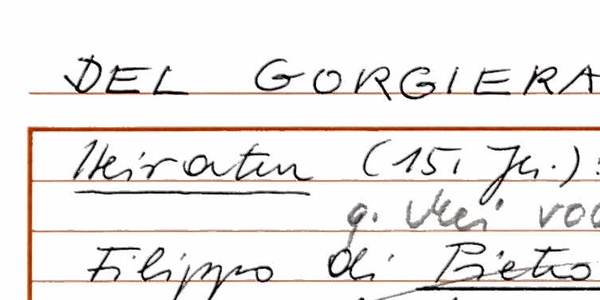 DEL GORGIERA
Heiraten (15. Jh.):
q.
Filippo di Pietro